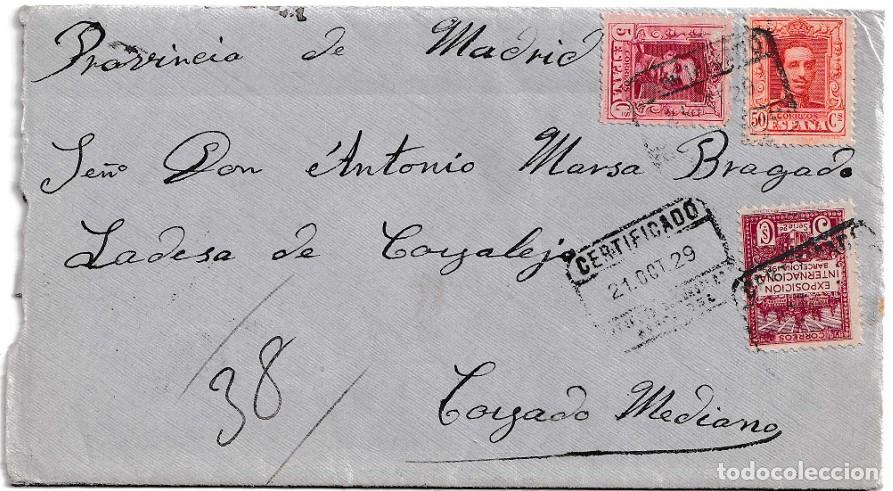 Provincia de Madrid
Seño Don Antonio Marsa Bragado
Ladesa de Coyalejo
Coyado Mediano
38
CERTIFICADO
21.OCT.29
5 Cs
CORREOS
ESPAÑA
50 Cs
CORREOS
ESPAÑA
5 Cs
EXPOSICION
INTERNACIONAL
BARCELONA
CORREOS
todocoleccion.net